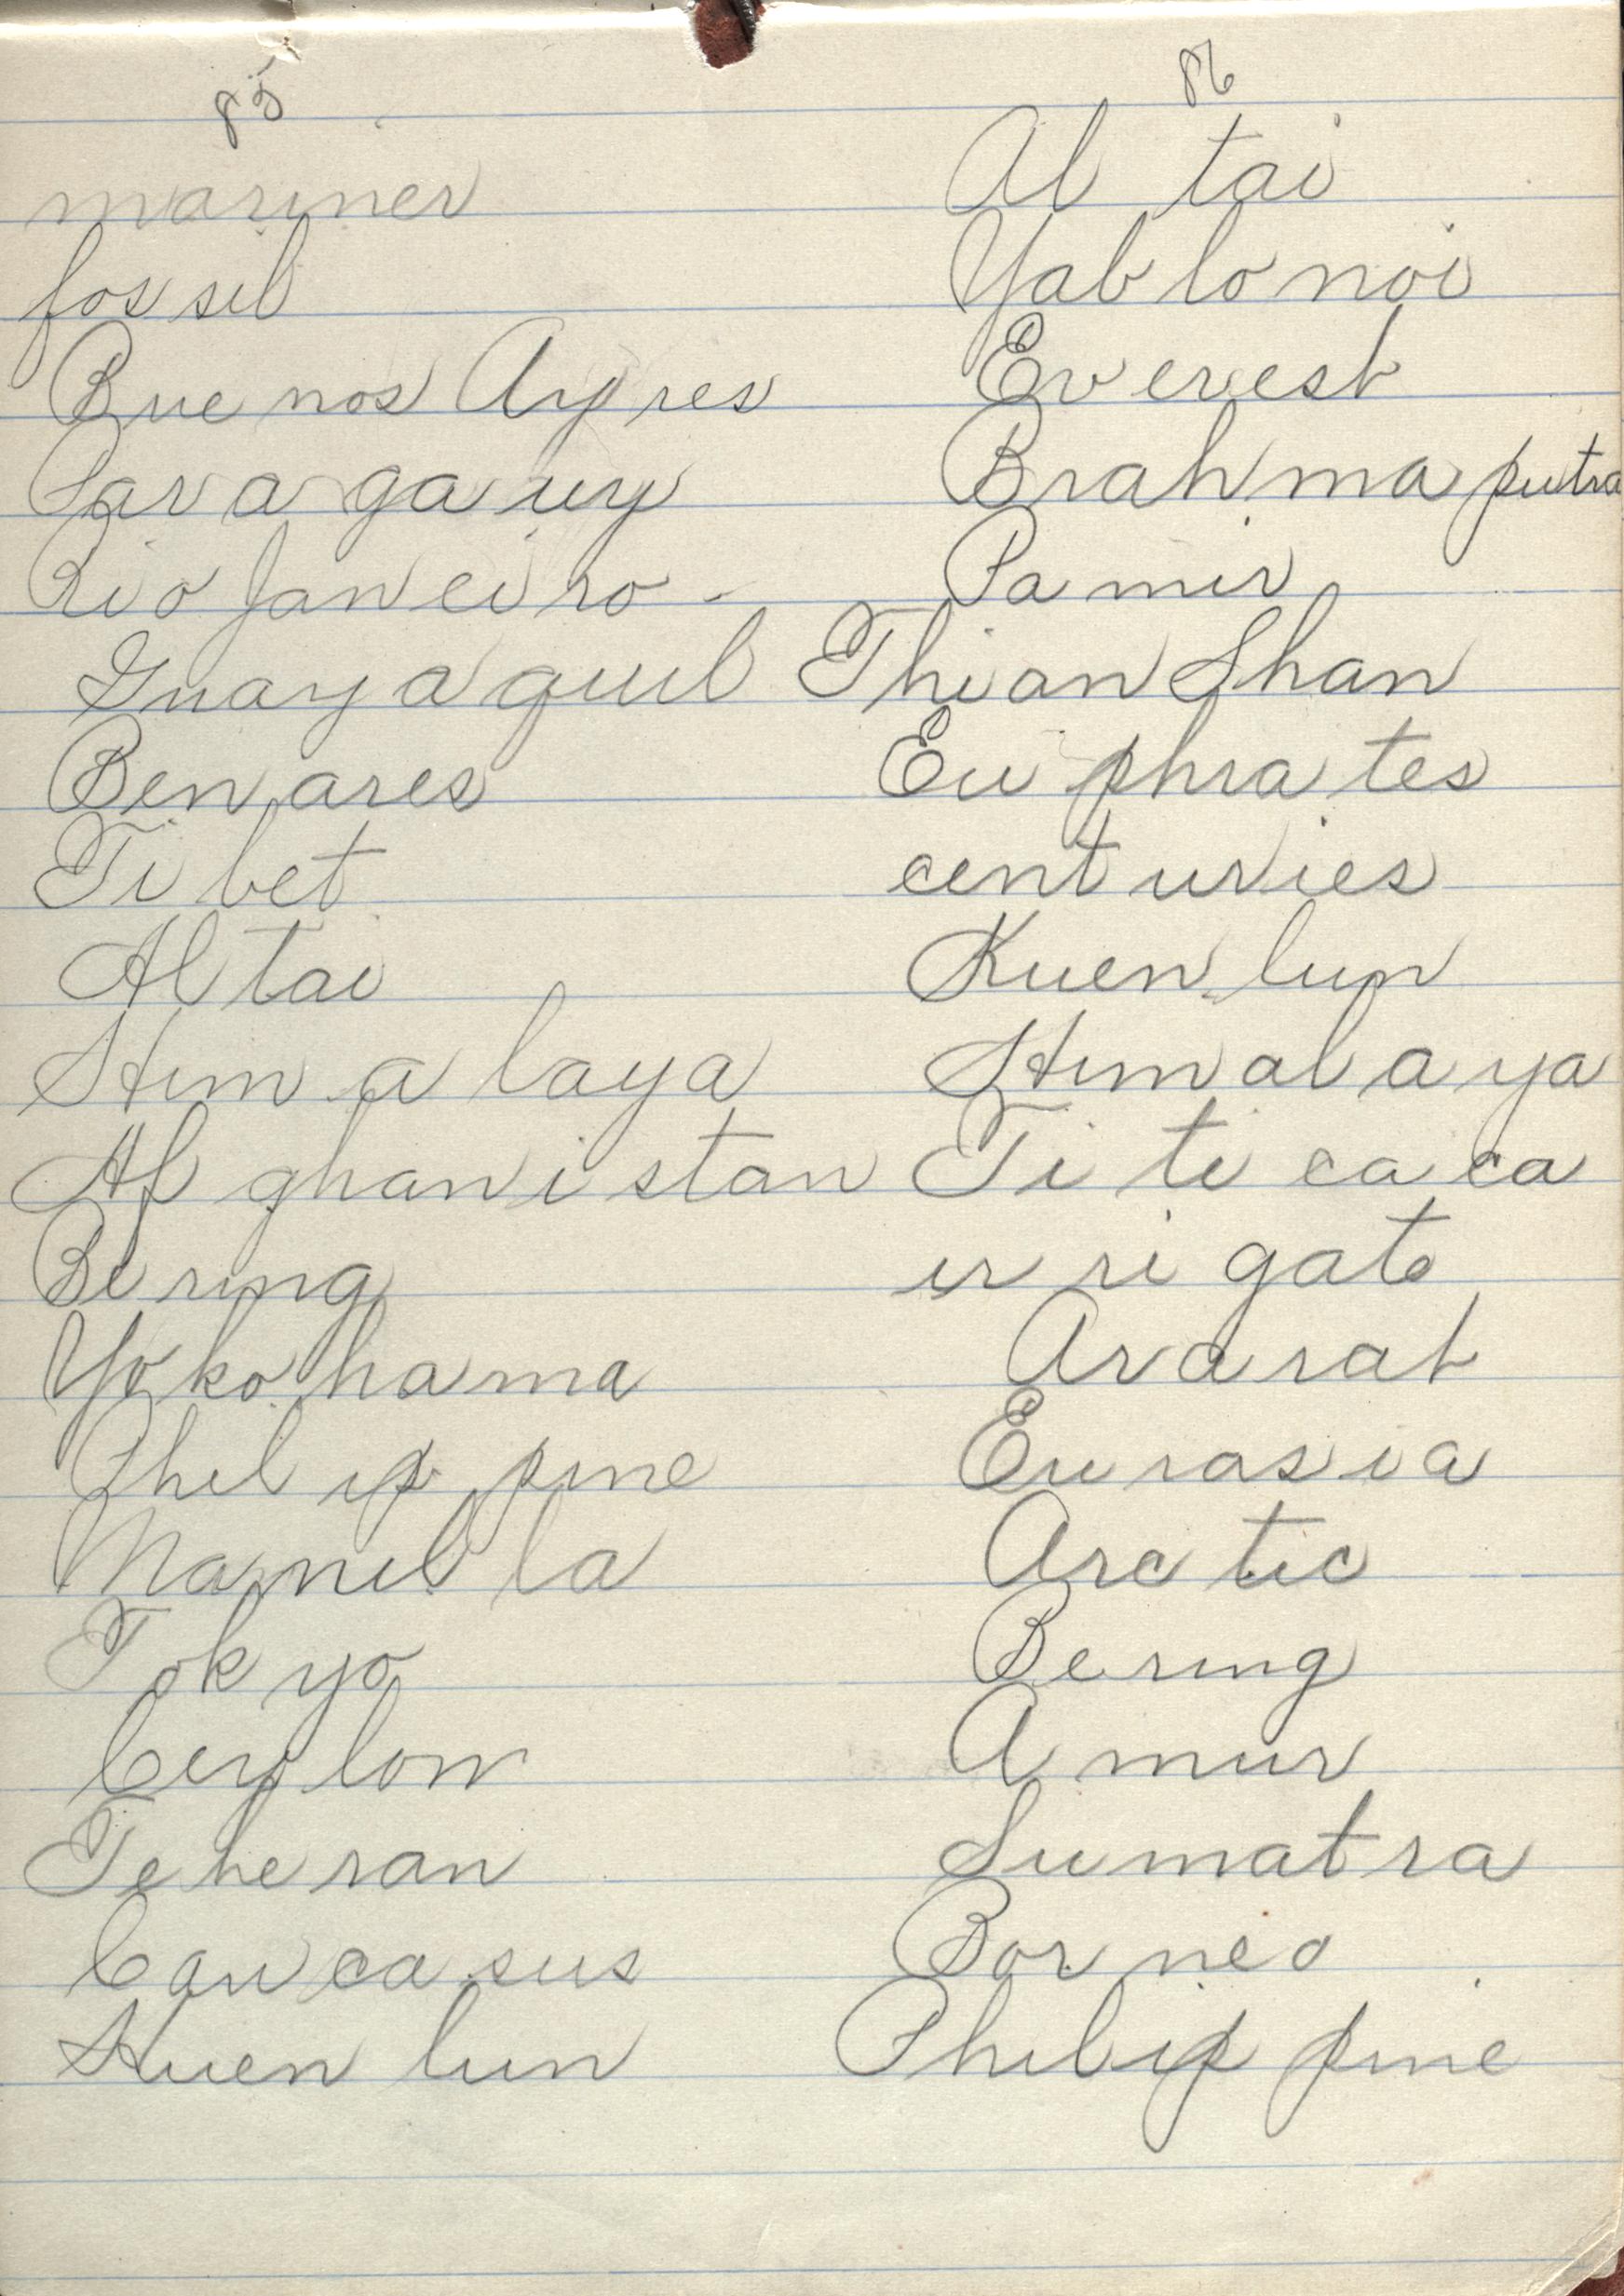 85
mariner
fos sil
Bue nos Ay res
Par a ga uy
Rio Jan ei ro -
Guay a quil
Ben ares
Ti bet
Al tai
Him a laya
Af ghan i stan
Be ring
Yo ko hama
Phil ip pine
Manil la
Tok yo
Cey lon
Te he ran
Cau ca sus
Kuen lun
86
Al tai
Yab lo noi
Ev erest
Brah ma putra
Pa mir
Thian Shan
Eu phra tes
cent uries
Kuen lun
Him al a ya
Ti ti ca ca
ir ri gate
Ar a rat
Eu ras i a
Arc tic
Be ring
A mur
Su mat ra
Bor ne o
Phil ip pine